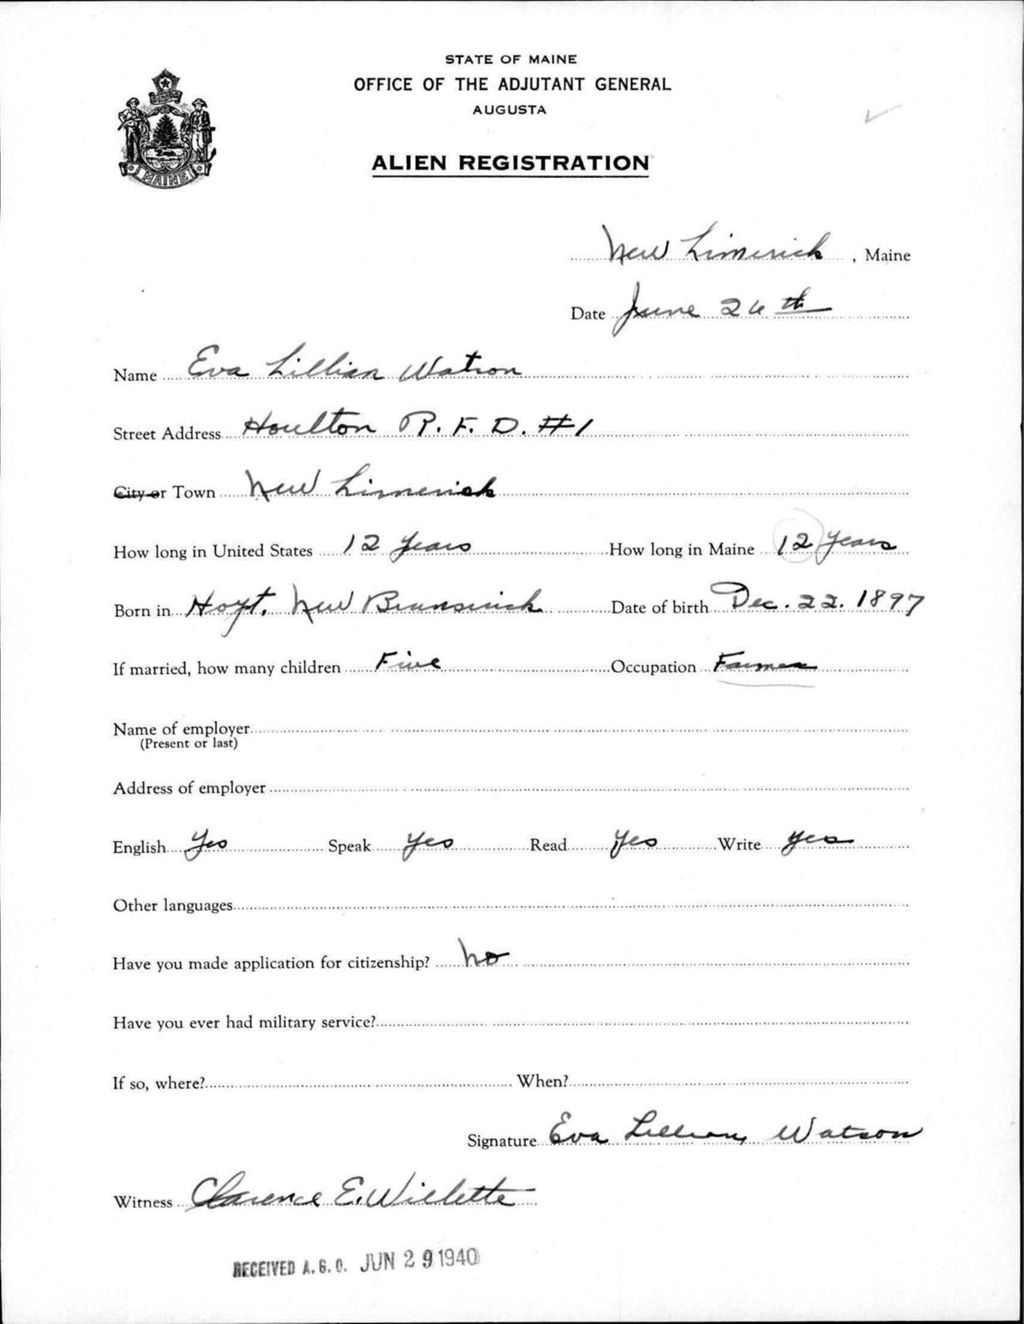 STATE OF MAINE
OFFICE OF THE ADJUTANT GENERAL
AUGUSTA
ALIEN REGISTRATION
MAINE
New Limerick, Maine
Date June 26th
Name Eva Lillian Watson
Street Address Houlton R.F.D. #1
City or Town New Limerick
How long in United States 12 years How long in Maine 12 years
Born in Hoyt, New Brunswick Date of birth Dec. 22. 1897
If married, how many children Five Occupation Farmer
Name of employer
(Present or last)
Address of employer
English Yes Speak Yes Read Yes Write Yes
Other languages
Have you made application for citizenship? No
Have you ever had military service?
If so, where? When?
Signature Eva Lillian Watson
Witness Clarence E. Willette
RECEIVED A.G.O. JUN 29 1940